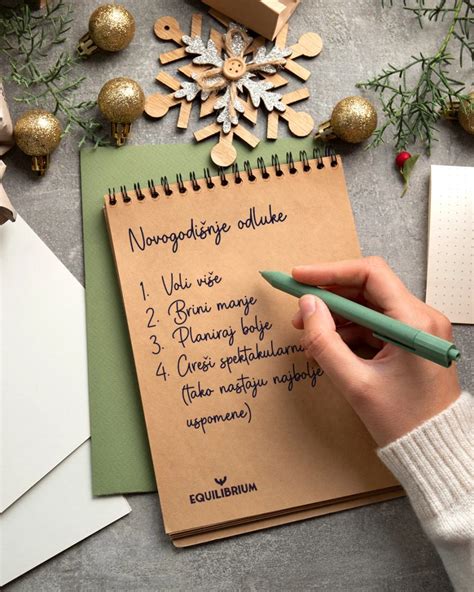 Novogodišnje odluke
1. Voli više
2. Brini manje
3. Planiraj bolje
4. Greši spektakularn
(tako nastaju najbolje
uspomene)
EQUILIBRIUM